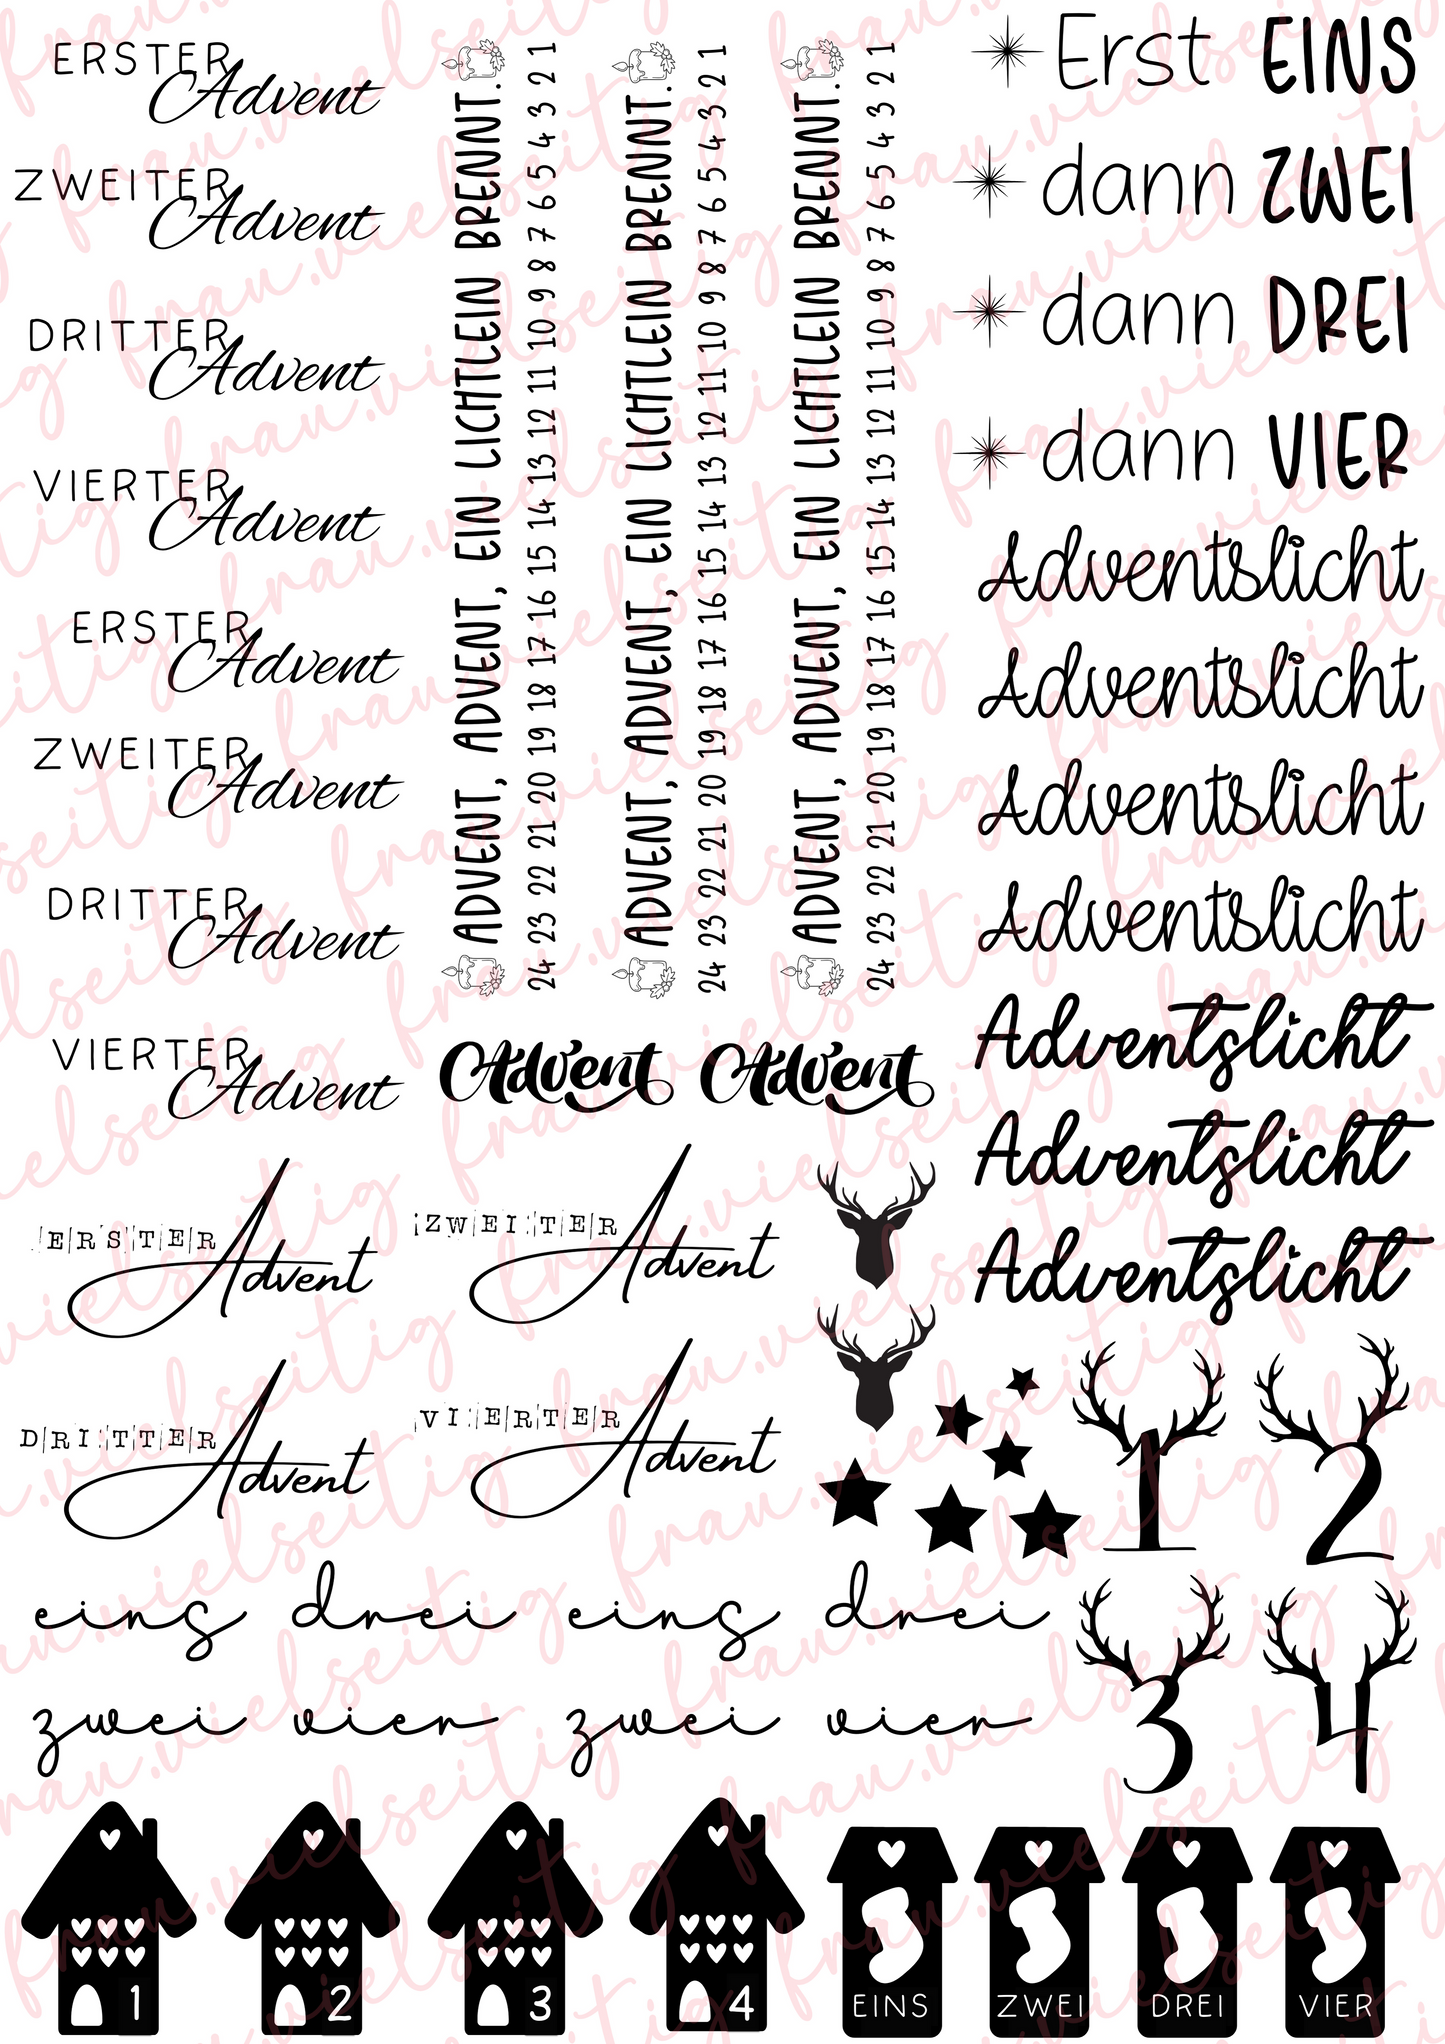 ERSTER
Advent
ZWEITER
Advent
DRITTER
Advent
VIERTER
Advent
ERSTER
Advent
ZWEITER
Advent
DRITTER
Advent
VIERTER
Advent
ADVENT, ADVENT, EIN LICHTLEIN BRENNT.
24 23 22 21 20 19 18 17 16 15 14 13 12 11 10 9 8 7 6 5 4 3 2 1
ADVENT, ADVENT, EIN LICHTLEIN BRENNT.
24 23 22 21 20 19 18 17 16 15 14 13 12 11 10 9 8 7 6 5 4 3 2 1
ADVENT, ADVENT, EIN LICHTLEIN BRENNT.
24 23 22 21 20 19 18 17 16 15 14 13 12 11 10 9 8 7 6 5 4 3 2 1
Erst EINS
dann ZWEI
dann DREI
dann VIER
Adventslicht
Adventslicht
Adventslicht
Adventslicht
Adventslicht
Adventslicht
Adventslicht
Advent Advent
ERSTER
Advent
ZWEITER
Advent
DRITTER
Advent
VIERTER
Advent
1 2
3 4
eins drei eins drei
zwei vier zwei vier
1 2 3 4
EINS ZWEI DREI VIER
frau.vielseitig